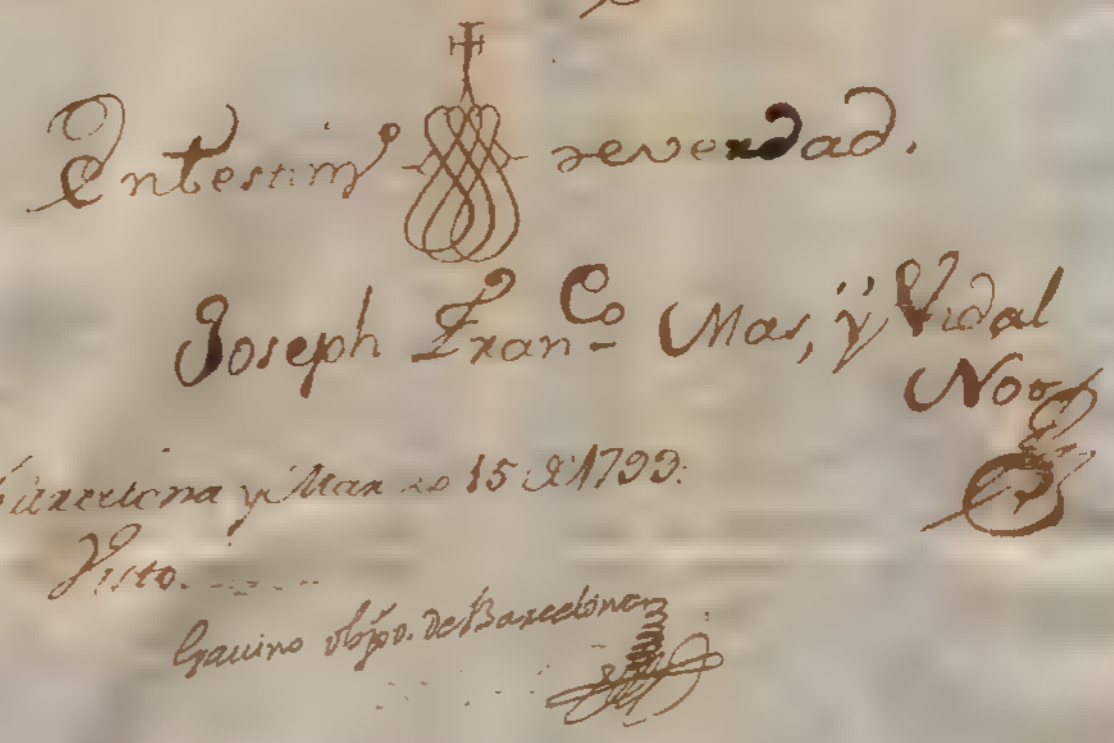 Entestimº deverdad.
Joseph Franco Mas, ÿ Vidal
Noº
Barcelona y Marzo 15 de 1799.
Visto.
Gavino obpo. de Barcelona